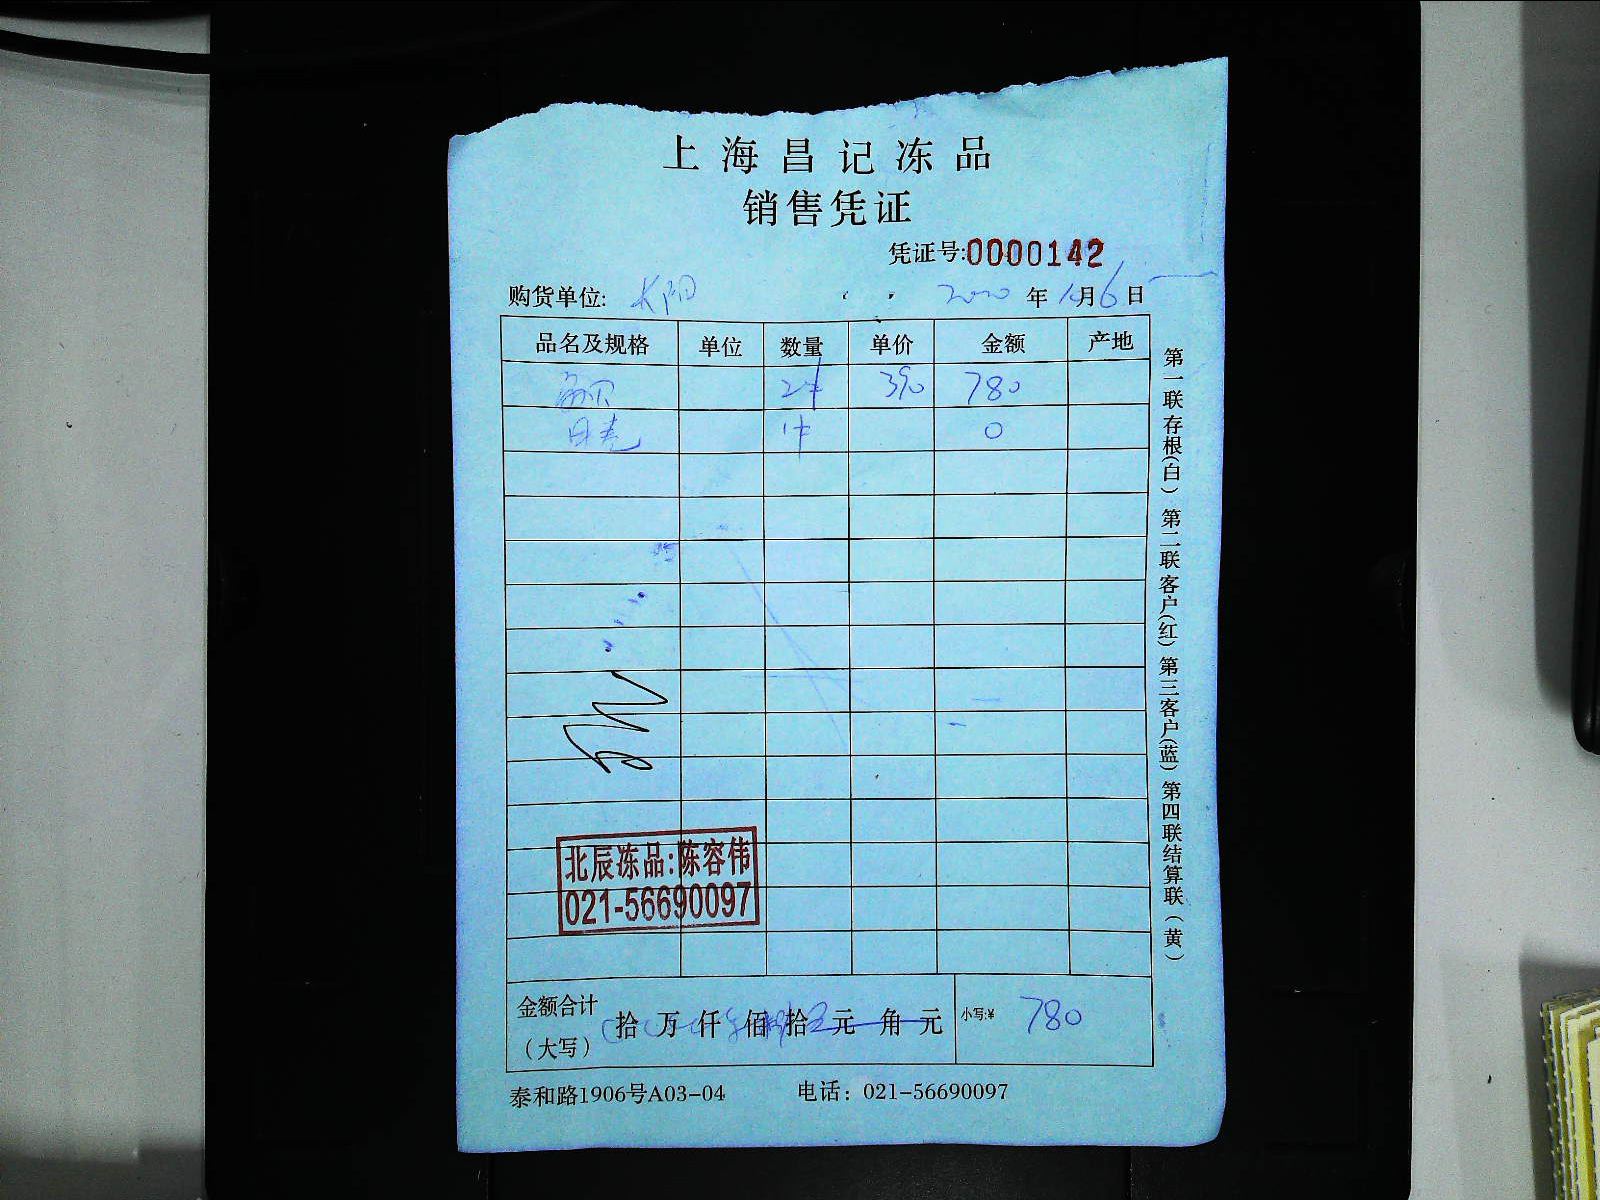 上海昌记冻品
销售凭证
凭证号:0000142
购货单位: 长阳 2020年10月6日
品名及规格 单位 数量 单价 金额 产地
2件 390 780
1件 0
北辰冻品:陈容伟
021-56690097
金额合计（大写） 拾 万 仟 佰 拾 元 角 元 小写:¥ 780
泰和路1906号A03-04 电话：021-56690097
第一联存根(白) 第二联客户(红) 第三客户(蓝) 第四联结算联(黄)